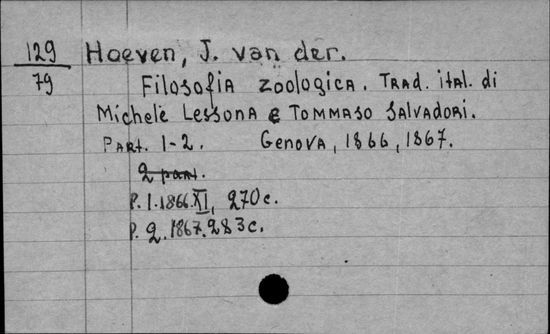 129
79
Hoeven, J. van der.
Filosofia zöologica. Trad. ital. di
Michele Lessona e Tommaso Salvadori.
Part. 1-2. Genova, 1866, 1867.
2 part.
P. 1. 1866. XI, 270 c.
P. 2. 1867. 283 c.